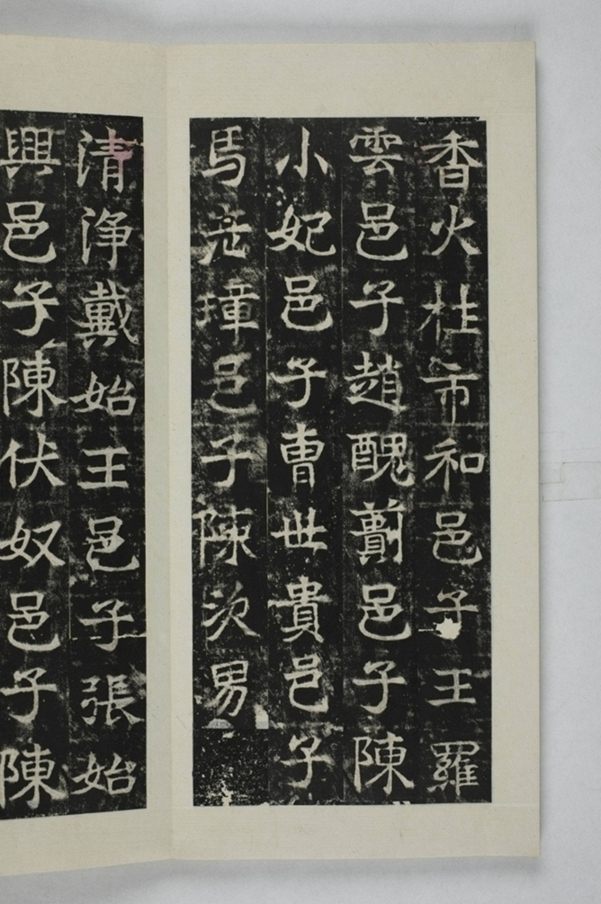 香火杜市和邑子王羅
雲邑子趙醜邑子陳
小妃邑子曹世貴邑子
馬邑子陳次男
清淨戴始王邑子張始
興邑子陳伏奴邑子陳